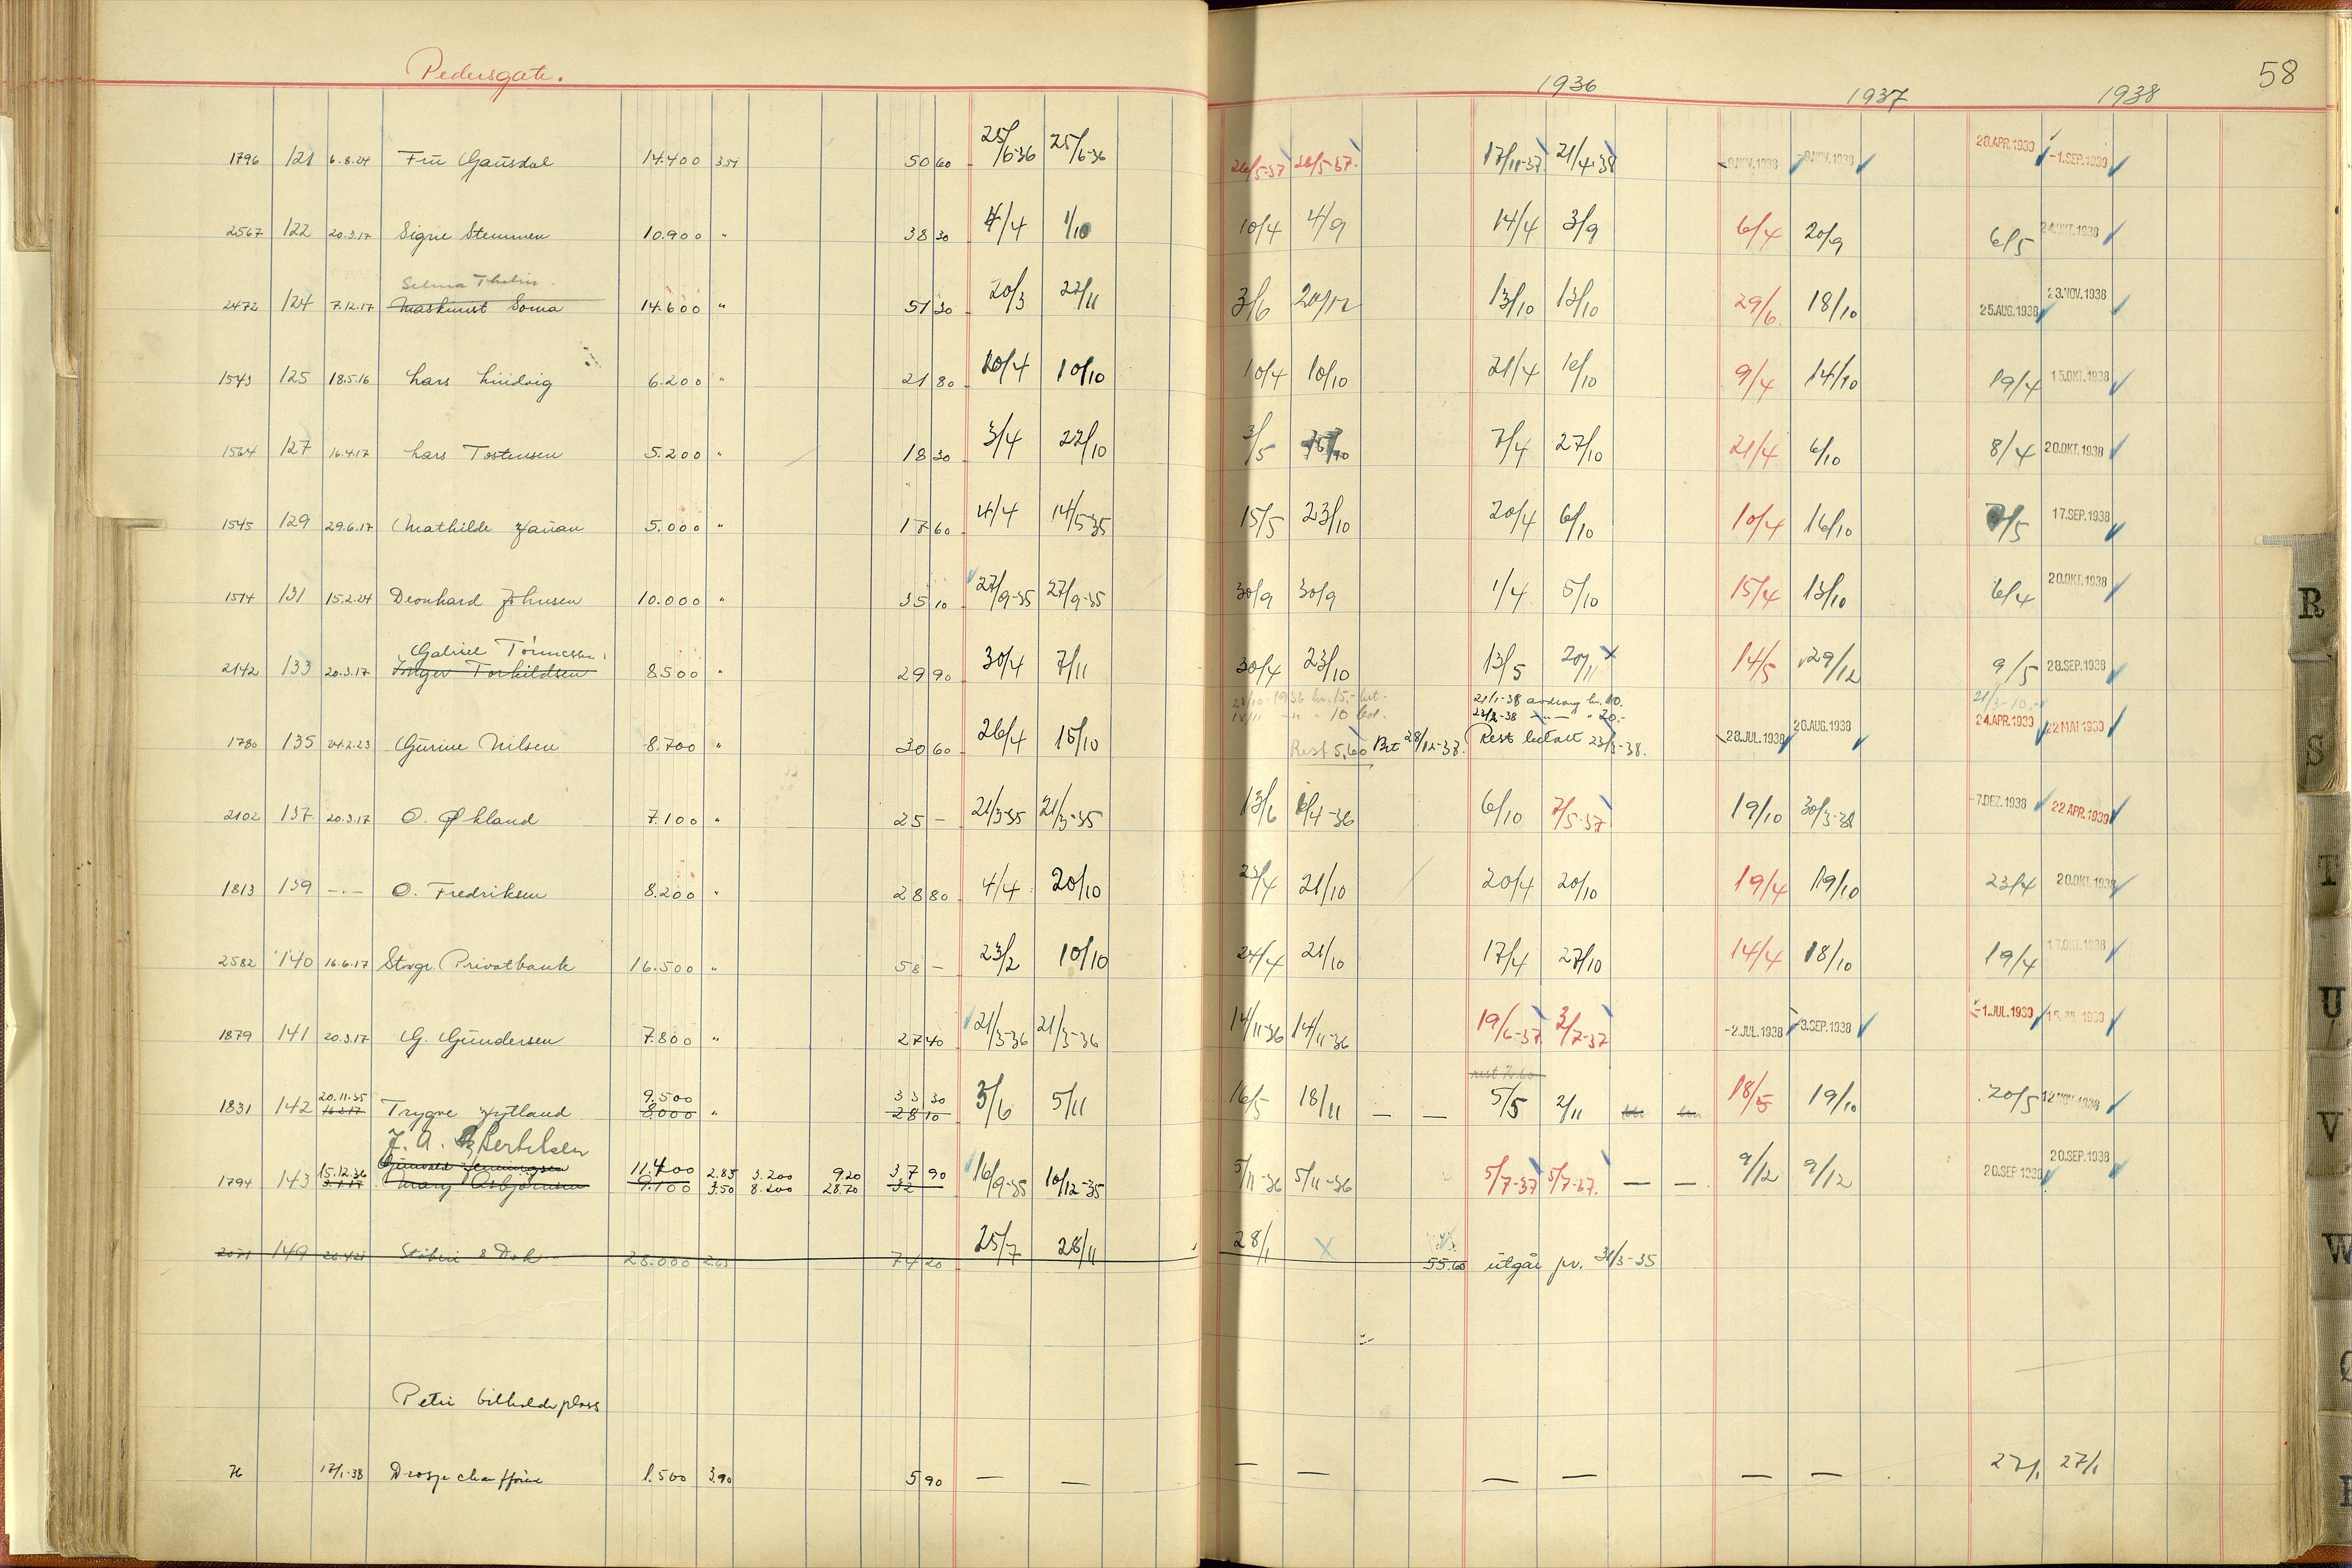 Pedersgate.
1936 1937 1938 58
1796 121 6.8.24 Fru Gausdal 14.400 3.51 50 60 25/6-36 25/6-36 26/5-37 26/5-37. 17/11-37 21/4-38 -9.NOV.1938 -9.NOV.1938 28.APR.1939 -1.SEP.1939
2567 122 20.3.17 Signe Stemmen 10.900 " 38 30 4/4 1/10 10/4 4/9 14/4 3/9 6/4 20/9 6/5 24.OKT.1938
Selma Thelin.
2472 124 7.12.17 Maskinist Soma 14.600 " 51 30 20/3 22/11 3/6 20/12 13/10 13/10 29/6. 18/10 25.AUG.1938 23.NOV.1938
1543 125 18.5.16 Lars Lindvig 6.200 " 21 80 10/4 10/10 10/4 10/10 21/4 10/10 9/4 14/10 19/4 15.OKT.1938
1564 127 16.4.17 Lars Tostensen 5.200 " 18 30 3/4 22/10 3/5 7/4 27/10 21/4 6/10 8/4 20.OKT.1938
1545 129 29.6.17 Mathilde 5.000 " 17 60 4/4 14/5-35 15/5 23/10 20/4 6/10 10/4 16/10 /5 17.SEP.1938
1514 131 15.2.24 Deonhard Johnsen 10.000 " 35 10 27/9-35 27/9-35 30/9 30/9 1/4 5/10 15/4 13/10 6/4 20.OKT.1938
Gabriel Tönnessen.
2142 133 20.3.17 Inger Torkildsen 8500 " 29 90 30/4 7/11 30/4 23/10 13/5 20/11 x 14/5 29/12 9/5 28.SEP.1938
1936 kr. 15,- bet. 21/1-38 avdrag kr. 10. 21/3-10,-
" 10 bet. -38 " 20.-
1780 135 24.2.23 Gurine Nilsen 8.700 " 30 60 26/4 15/10 Rest 5,60 Bet 28/12-38. Rest betalt 23/3-38. 28.JUL.1938 26.AUG.1938 24.APR.1939 22 MAI 1939
2102 137 20.3.17 O. Økland 7.100 " 25 - 21/3-35 21/3-35 13/6 6/4-36 6/10 7/5-37 19/10 30/3-38 -7.DEZ.1938 22 APR.1939
1813 139 -"- O. Fredriksen 8.200 " 28 80 4/4 20/10 23/4 21/10 20/4 20/10 19/4 19/10 23/4 20.OKT.1938
2582 140 16.6.17 Stvgr. Privatbank 16.500 " 58 - 23/2 10/10 24/4 21/10 17/4 27/10 14/4 18/10 19/4 17.OKT.1938
1879 141 20.3.17 G. Gundersen 7.800 " 27 40 21/3-36 21/3-36 14/11-36 14/11-36 19/6-37 3/7-37 -2.JUL.1938 -3.SEP.1938 -1.JUL.1939 15.JUL.1939
20.11.35 9.500 33 30
1831 142 16.2.17 Trygve Hytland 8.000 " 28 10 3/6 5/11 16/5 18/11 — — 5/5 2/11 18/5 19/10 20/5 12 NOV.1938
J. A. Bertelsen
15.12.36 Gunvald Henningsen 11.400 2.85 3.200 9.20 37 90
1794 143 3.1.17 Mary Asbjörnsen 9.100 3.50 8.200 28.70 32 16/9-35 10/12-35 5/11-36 5/11-36 5/7-37 5/7-37. — — 9/12 9/12 20.SEP.1938 20.SEP.1938
2071 149 26.4.21 Støberi & Dok 28.000 2.65 74 20 25/7 28/11 28/1 x 55.60 utgår pr. 31/3-35
Petri bilholdeplass
76 17/1-38 Drosjechaffører 1.500 3.90 5 90 — — — — — — — — 27/1 27/1
R
S
T
U
V
W